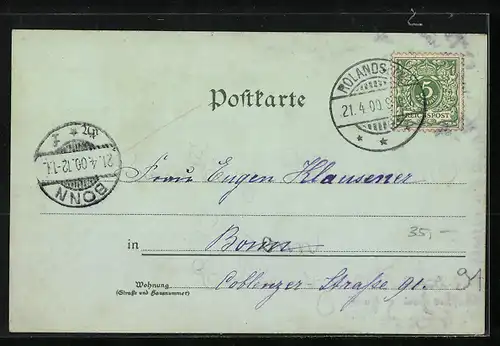 2
ROLANDS
21.4.00.9
5
REICHSPOST
Postkarte
BONN
21.4.00.12-1
Frau Eugen Klausener
35,-
in Bonn
Wohnung
(Straße und Hausnummer)
Coblenzer-Straße 91.
91